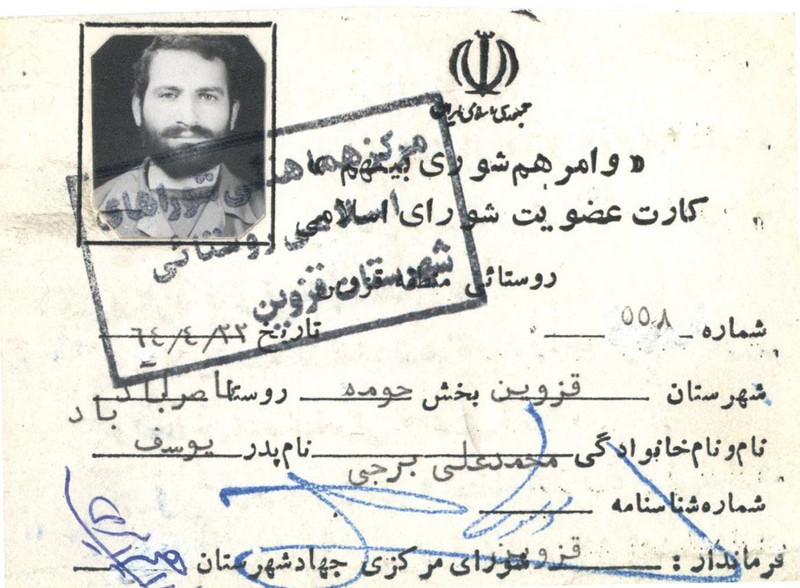 جمهوری اسلامی ایران
« وامرهم شوری بینهم »
کارت عضویت شورای اسلامی
روستائی منطقه قزوین
مرکز هماهنگی شوراهای
اسلامی روستائی
شهرستان قزوین
شماره ۵۵۸ تاریخ ۶۴/۴/۲۲
شهرستان قزوین بخش حومه روستا ناصرآباد
نام و نام خانوادگی محمدعلی برجی نام پدر یوسف
شماره شناسنامه
فرماندار : قزوین شورای مرکزی جهاد شهرستان